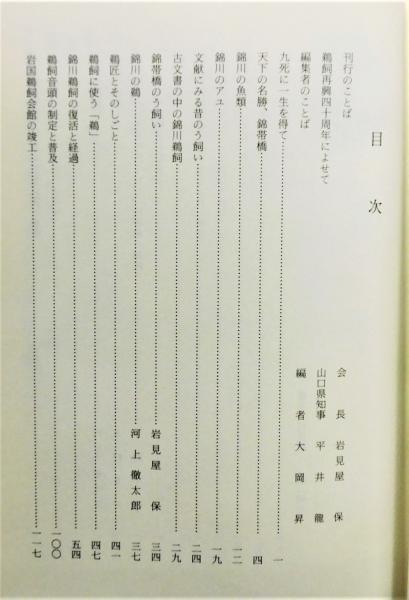 目次
刊行のことば 会長 岩見屋 保
鵜飼再興四十周年によせて 山口県知事 平井 龍
編集者のことば 編者 大岡 昇
九死に一生を得て 一
天下の名勝、錦帯橋 四
錦川の魚類 一二
錦川のアユ 一九
文献にみる昔のう飼い 二四
古文書の中の錦川鵜飼 二九
錦帯橋のう飼い 岩見屋 保 三四
錦川の鵜 河上 徹太郎 三七
鵜匠とそのしごと 四一
鵜飼に使う「鵜」 四七
錦川鵜飼の復活と経過 五四
鵜飼音頭の制定と普及 一〇〇
岩国鵜飼会館の竣工 一一七